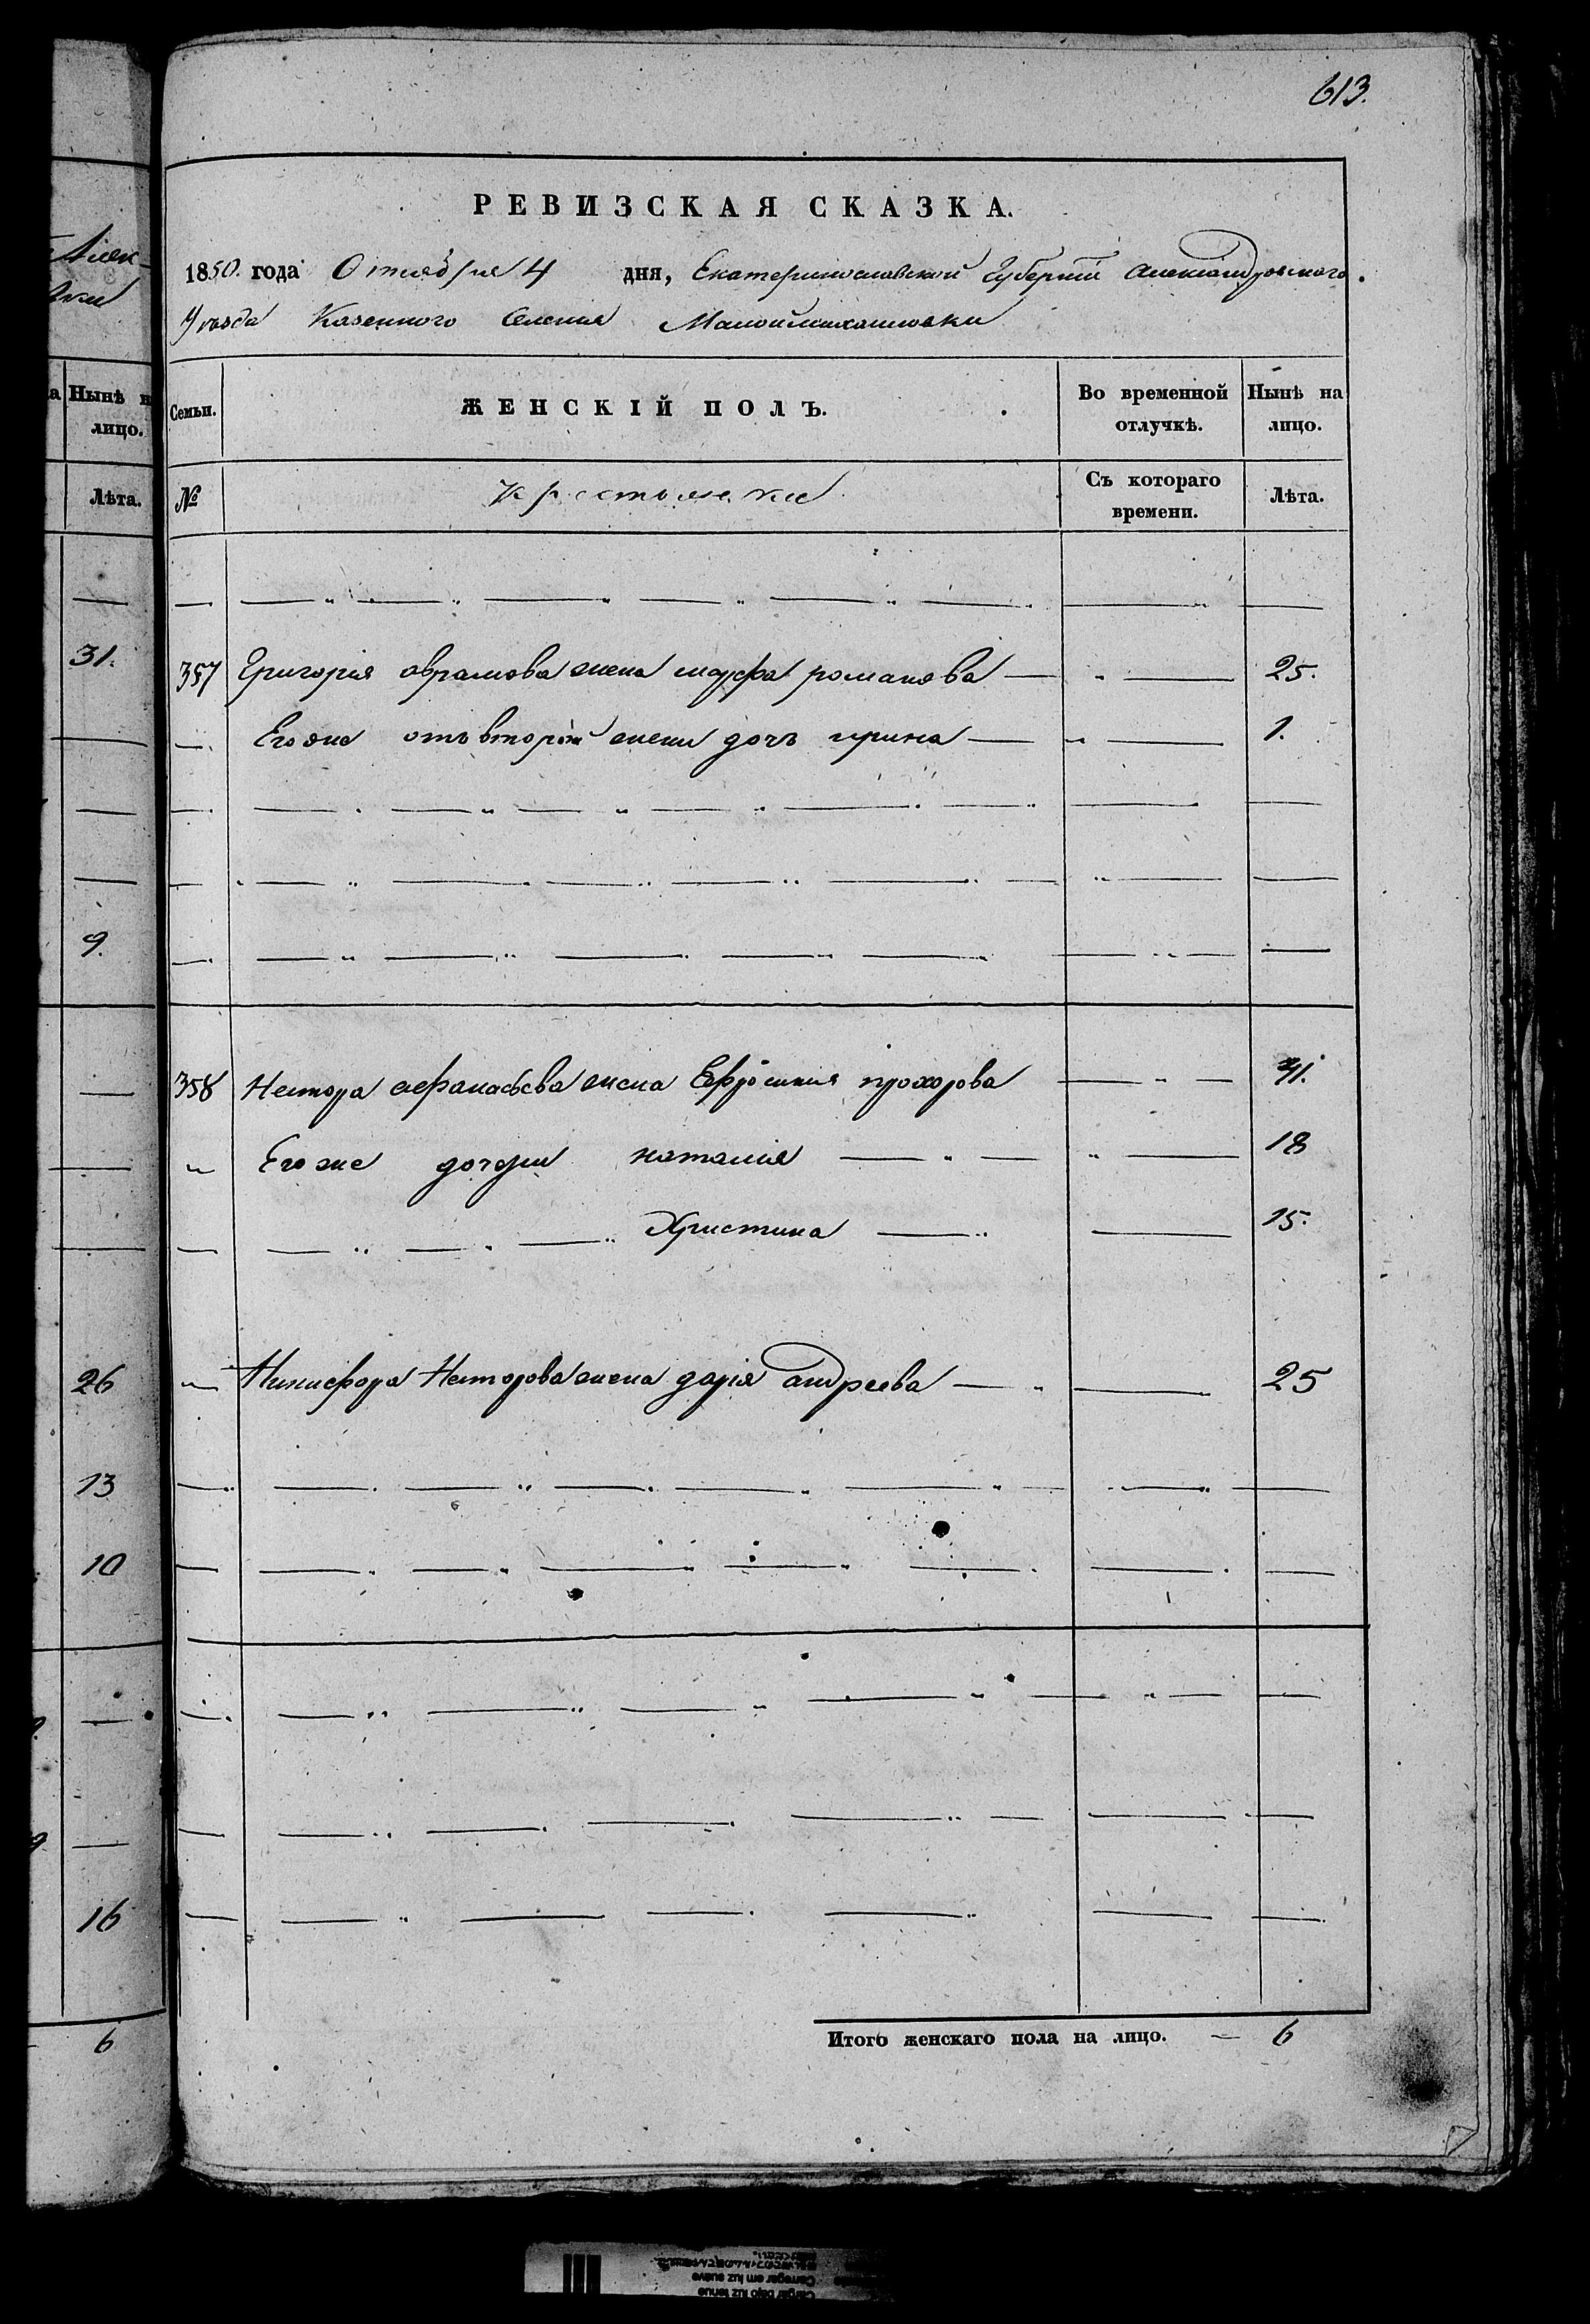 613.
РЕВИЗСКАЯ СКАЗКА.
1850. года Октября 4 дня, Екатеринославской Губернии Александровского
Уезда Казенного Селения Маломихайловки
Семьи. ЖЕНСКІЙ ПОЛЪ. Во временной отлучкѣ. Нынѣ на лицо.
№ Крестьянки Съ котораго времени. Лѣта.
Нынѣ н
лицо.
Лѣта.
31.
357 Григорія аврамова жена марфа романова 25.
Его же отъ второй жены дочь ирина 1.
9.
358 Нестора афанасьева жена Ефросиния прохорова 41.
Его же дочери наталия 18
Христина 15.
26
Никифора Несторова жена дария андреева 25
13
10
16
Итого женскаго пола на лицо. 6
6